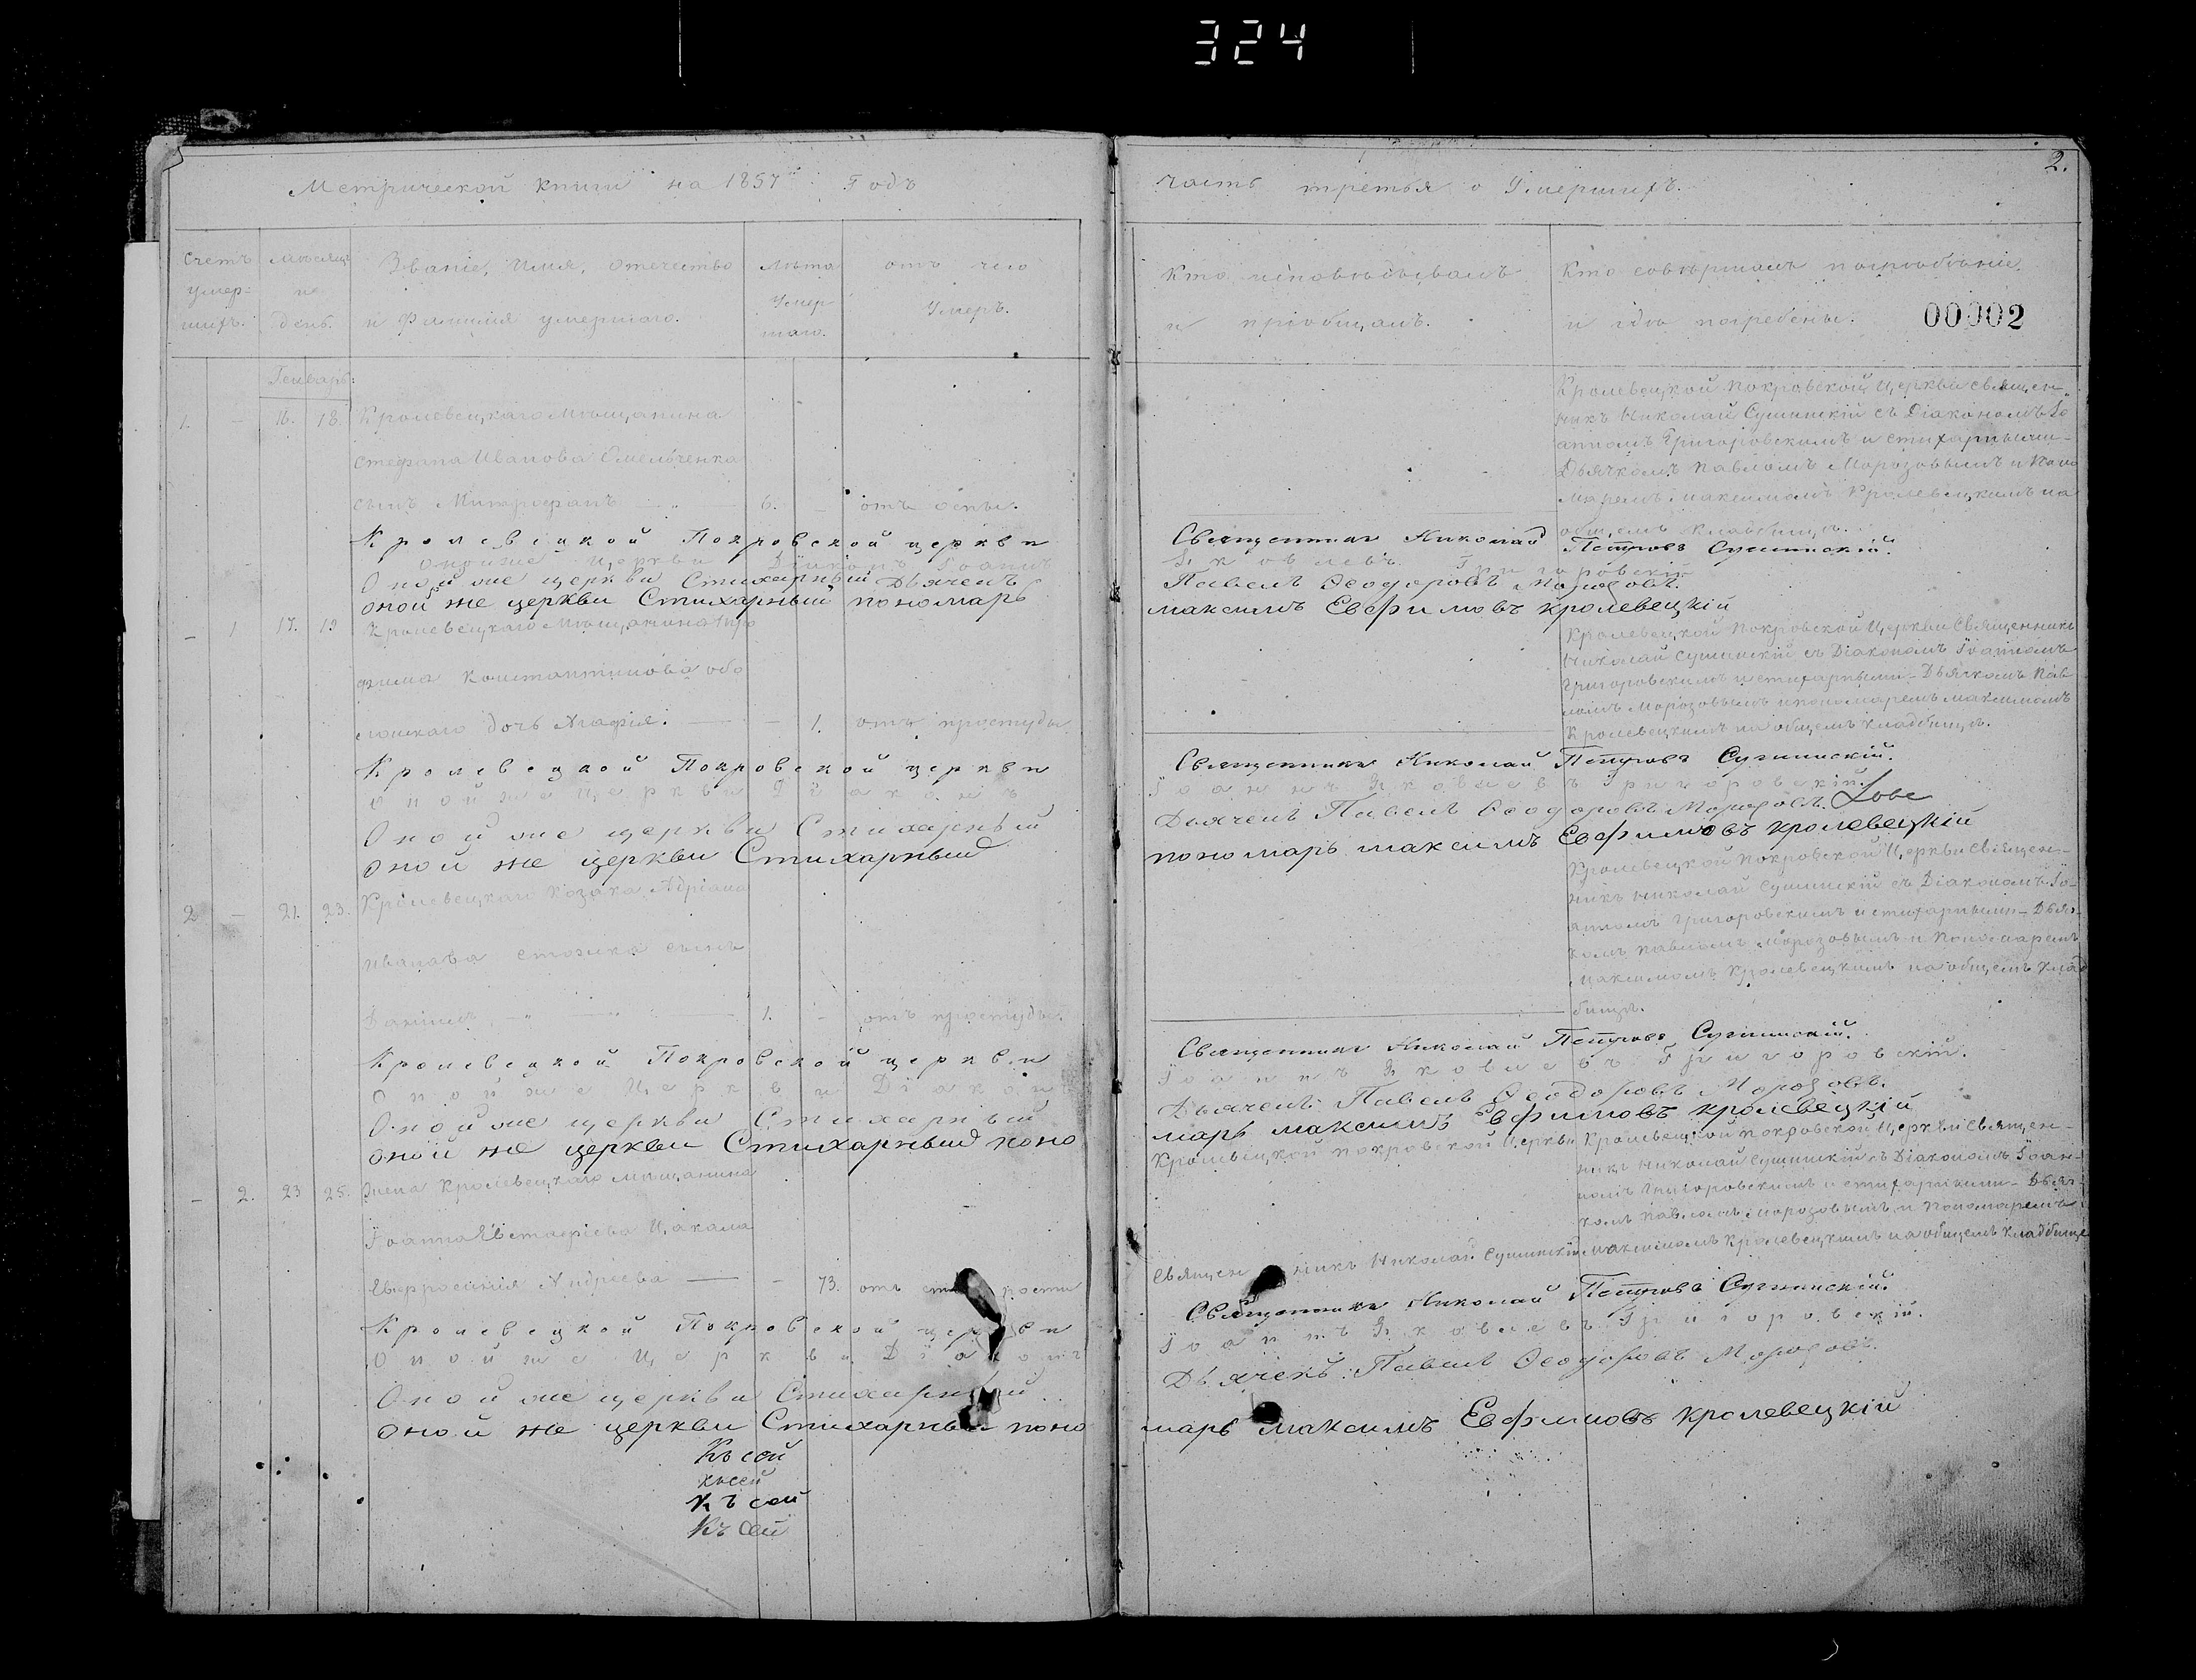 324
2.
Метрической книги на 1857й Годъ
часть третья о Умершихъ.
Счетъ умер- шихъ.
Мѣсяцъ и день.
Званіе, Имя, Отечество
и Фамилія умершаго.
Лѣта Умер- шаго.
отъ чего
Умеръ.
Кто исповѣдывалъ
и пріобщалъ.
Кто совершалъ погребеніе
и гдѣ погребены.
00002
Генварь:
1. - 16. 18. Кролевецкаго Мѣщанина
Стефана Иванова Омельченка
сынъ Митрофанъ — 6. отъ оспы.
Кролевецкой Покровской Церкви Священ-
никъ Николай Сушинскій съ Діакономъ Іо
анномъ Григоровскимъ и стихарными-
Дьячкомъ Павломъ Морозовымъ и Поно
маремъ Максимомъ Кролевецкимъ на
общемъ кладбищѣ.
Кролевецкой Покровской церкви Священникъ Николай Петровъ Сушинскій.
оной же Церкви Діаконъ Іоаннъ Яковлевъ Григоровскій
Оной же церкви Стихарный Дьячекъ Павелъ Ѳеодоровъ Морозовъ.
оной же церкви Стихарный пономарь максимъ Евфимовъ кролевецкій
- 1 17. 19 Кролевецкаго Мѣщанина Тро
фима Константинова обо
лонскаго дочь Агафія. — - 1. отъ простуды
Кролевецкой Покровской Церкви Священникъ
Николай Сушинскій съ Діакономъ Іоанномъ
Григоровскимъ и стихарными-Дьячкомъ Пав
ломъ Морозовымъ и пономаремъ Максимомъ
Кролевецкимъ на общемъ кладбищѣ.
Кролевецкой Покровской церкви Священникъ Николай Петровъ Сушинскій.
оной же Церкви Діаконъ Іоаннъ Яковлевъ Григоровскій.
Оной же церкви Стихарный Дьячекъ Павелъ Ѳеодоровъ Морозовъ.
оной же церкви Стихарный пономарь максимъ Евфимовъ кролевецкій
2 - 21. 23. Кролевецкаго Козака Адріана
Иванова Стожка сынъ
Даніилъ — 1. - отъ простуды.
Кролевецкой Покровской Церкви Священ-
никъ Николай Сушинскій съ Діакономъ Іо-
анномъ Григоровскимъ и стихарными-Дьяч-
комъ Павломъ Морозовымъ и Пономаремъ
Максимомъ Кролевецкимъ на общемъ клад
бищѣ.
Кролевецкой Покровской церкви Священникъ Николай Петровъ Сушинскій.
Оной же Церкви Діаконъ Іоаннъ Яковлевъ Григоровскій.
Оной же церкви Стихарный Дьячекъ Павелъ Ѳеодоровъ Морозовъ.
оной же церкви Стихарный поно марь максимъ Евфимовъ кролевецкій
- 2. 23 25. Жена Кролевецкаго мѣщанина
Іоанна Евстафіева Цакала
Евфросинія Андреева — - 73. отъ старости
Кролевецкой Покровской Церкви
Священникъ Николай Сушинскій
Кролевецкой Покровской Церкви Священ-
никъ Николай Сушинскій съ Діакономъ Іоан-
номъ Григоровскимъ и стихарными-Дьяч-
комъ Павломъ Морозовымъ и Пономаремъ
Максимомъ Кролевецкимъ на общемъ кладбище
Кролевецкой Покровской церкви Священникъ Николай Петровъ Сушинскій.
Оной же Церкви Діаконъ Іоаннъ Яковлевъ Григоровскій.
Оной же церкви Стихарный Дьячекъ Павелъ Ѳеодоровъ Морозовъ.
оной же церкви Стихарный поно марь максимъ Евфимовъ кролевецкій
Къ сей
къ сей
Къ сей
Къ сей